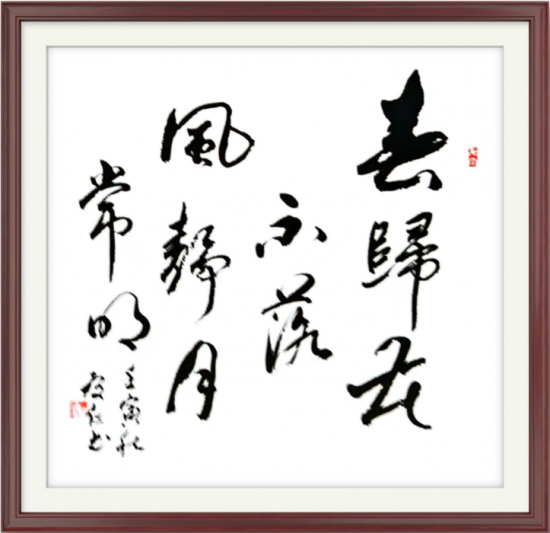 春歸花
不落
風靜月
常明
壬寅秋